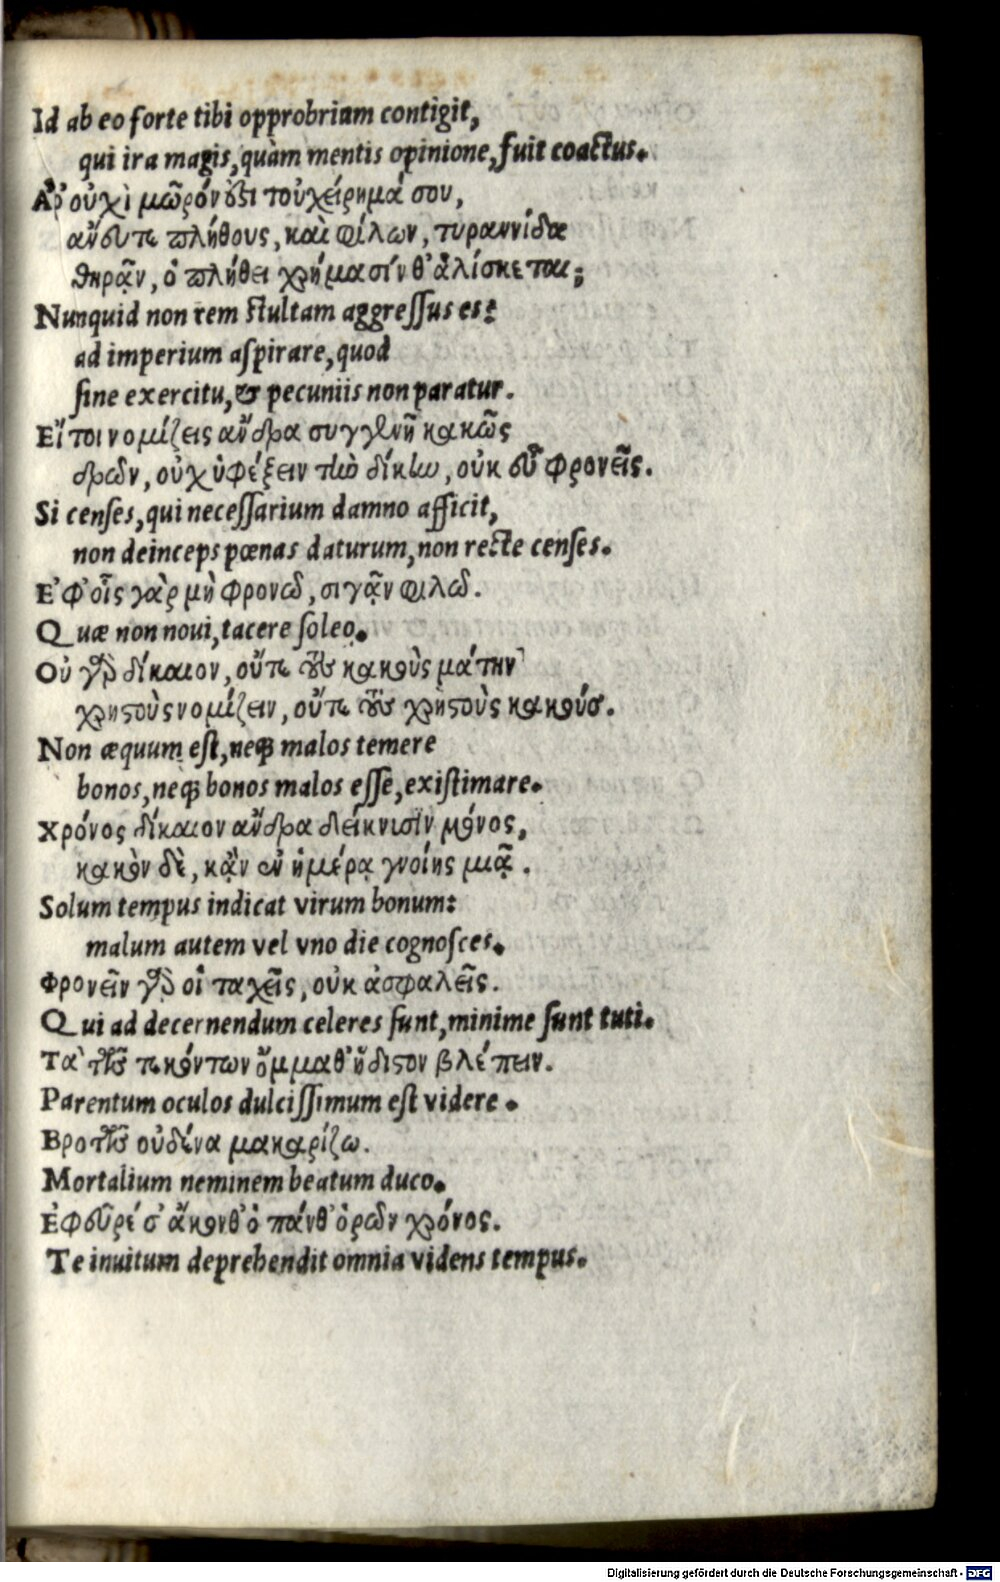 Id ab eo forte tibi opprobrium contigit,
qui ira magis, quàm mentis opinione, fuit coactus.
Ἆρ' οὐχὶ μῶρόν ἐστι τοὐχείρημά σου,
ἄνευ τε πλήθους, καὶ φίλων, τυραννίδα
θηρᾷν, ὁ πλήθει χρήμασίν θ' ἁλίσκεται;
Nunquid non rem stultam aggressus es:
ad imperium aspirare, quod
sine exercitu, & pecuniis non paratur.
Εἴ τοι νομίζεις ἄνδρα συγγενῆ κακῶς
δρῶν, οὐχ ὑφέξειν τὴν δίκην, οὐκ εὖ φρονεῖς.
Si censes, qui necessarium damno afficit,
non deinceps pœnas daturum, non recte censes.
Ἐφ' οἷς γὰρ μὴ φρονῶ, σιγᾷν φιλῶ.
Quæ non noui, tacere soleo.
Οὐ γὰρ δίκαιον, οὔτε τοὺς κακοὺς μάτην
χρηστοὺς νομίζειν, οὔτε τοὺς χρηστοὺς κακούς.
Non æquum est, neq; malos temere
bonos, neq; bonos malos esse, existimare.
Χρόνος δίκαιον ἄνδρα δείκνυσιν μόνος,
κακὸν δὲ, κᾂν ἐν ἡμέρᾳ γνοίης μιᾷ.
Solum tempus indicat virum bonum:
malum autem vel vno die cognosces.
Φρονεῖν γὰρ οἱ ταχεῖς, οὐκ ἀσφαλεῖς.
Qui ad decernendum celeres sunt, minime sunt tuti.
Τὰ τῶν τεκόντων ὄμμαθ' ἥδιστον βλέπειν.
Parentum oculos dulcissimum est videre.
Βροτῶν οὐδένα μακαρίζω.
Mortalium neminem beatum duco.
Ἐφεῦρέ σ' ἄκονθ' ὁ πάνθ' ὁρῶν χρόνος.
Te inuitum deprehendit omnia videns tempus.
Digitalisierung gefördert durch die Deutsche Forschungsgemeinschaft - DFG